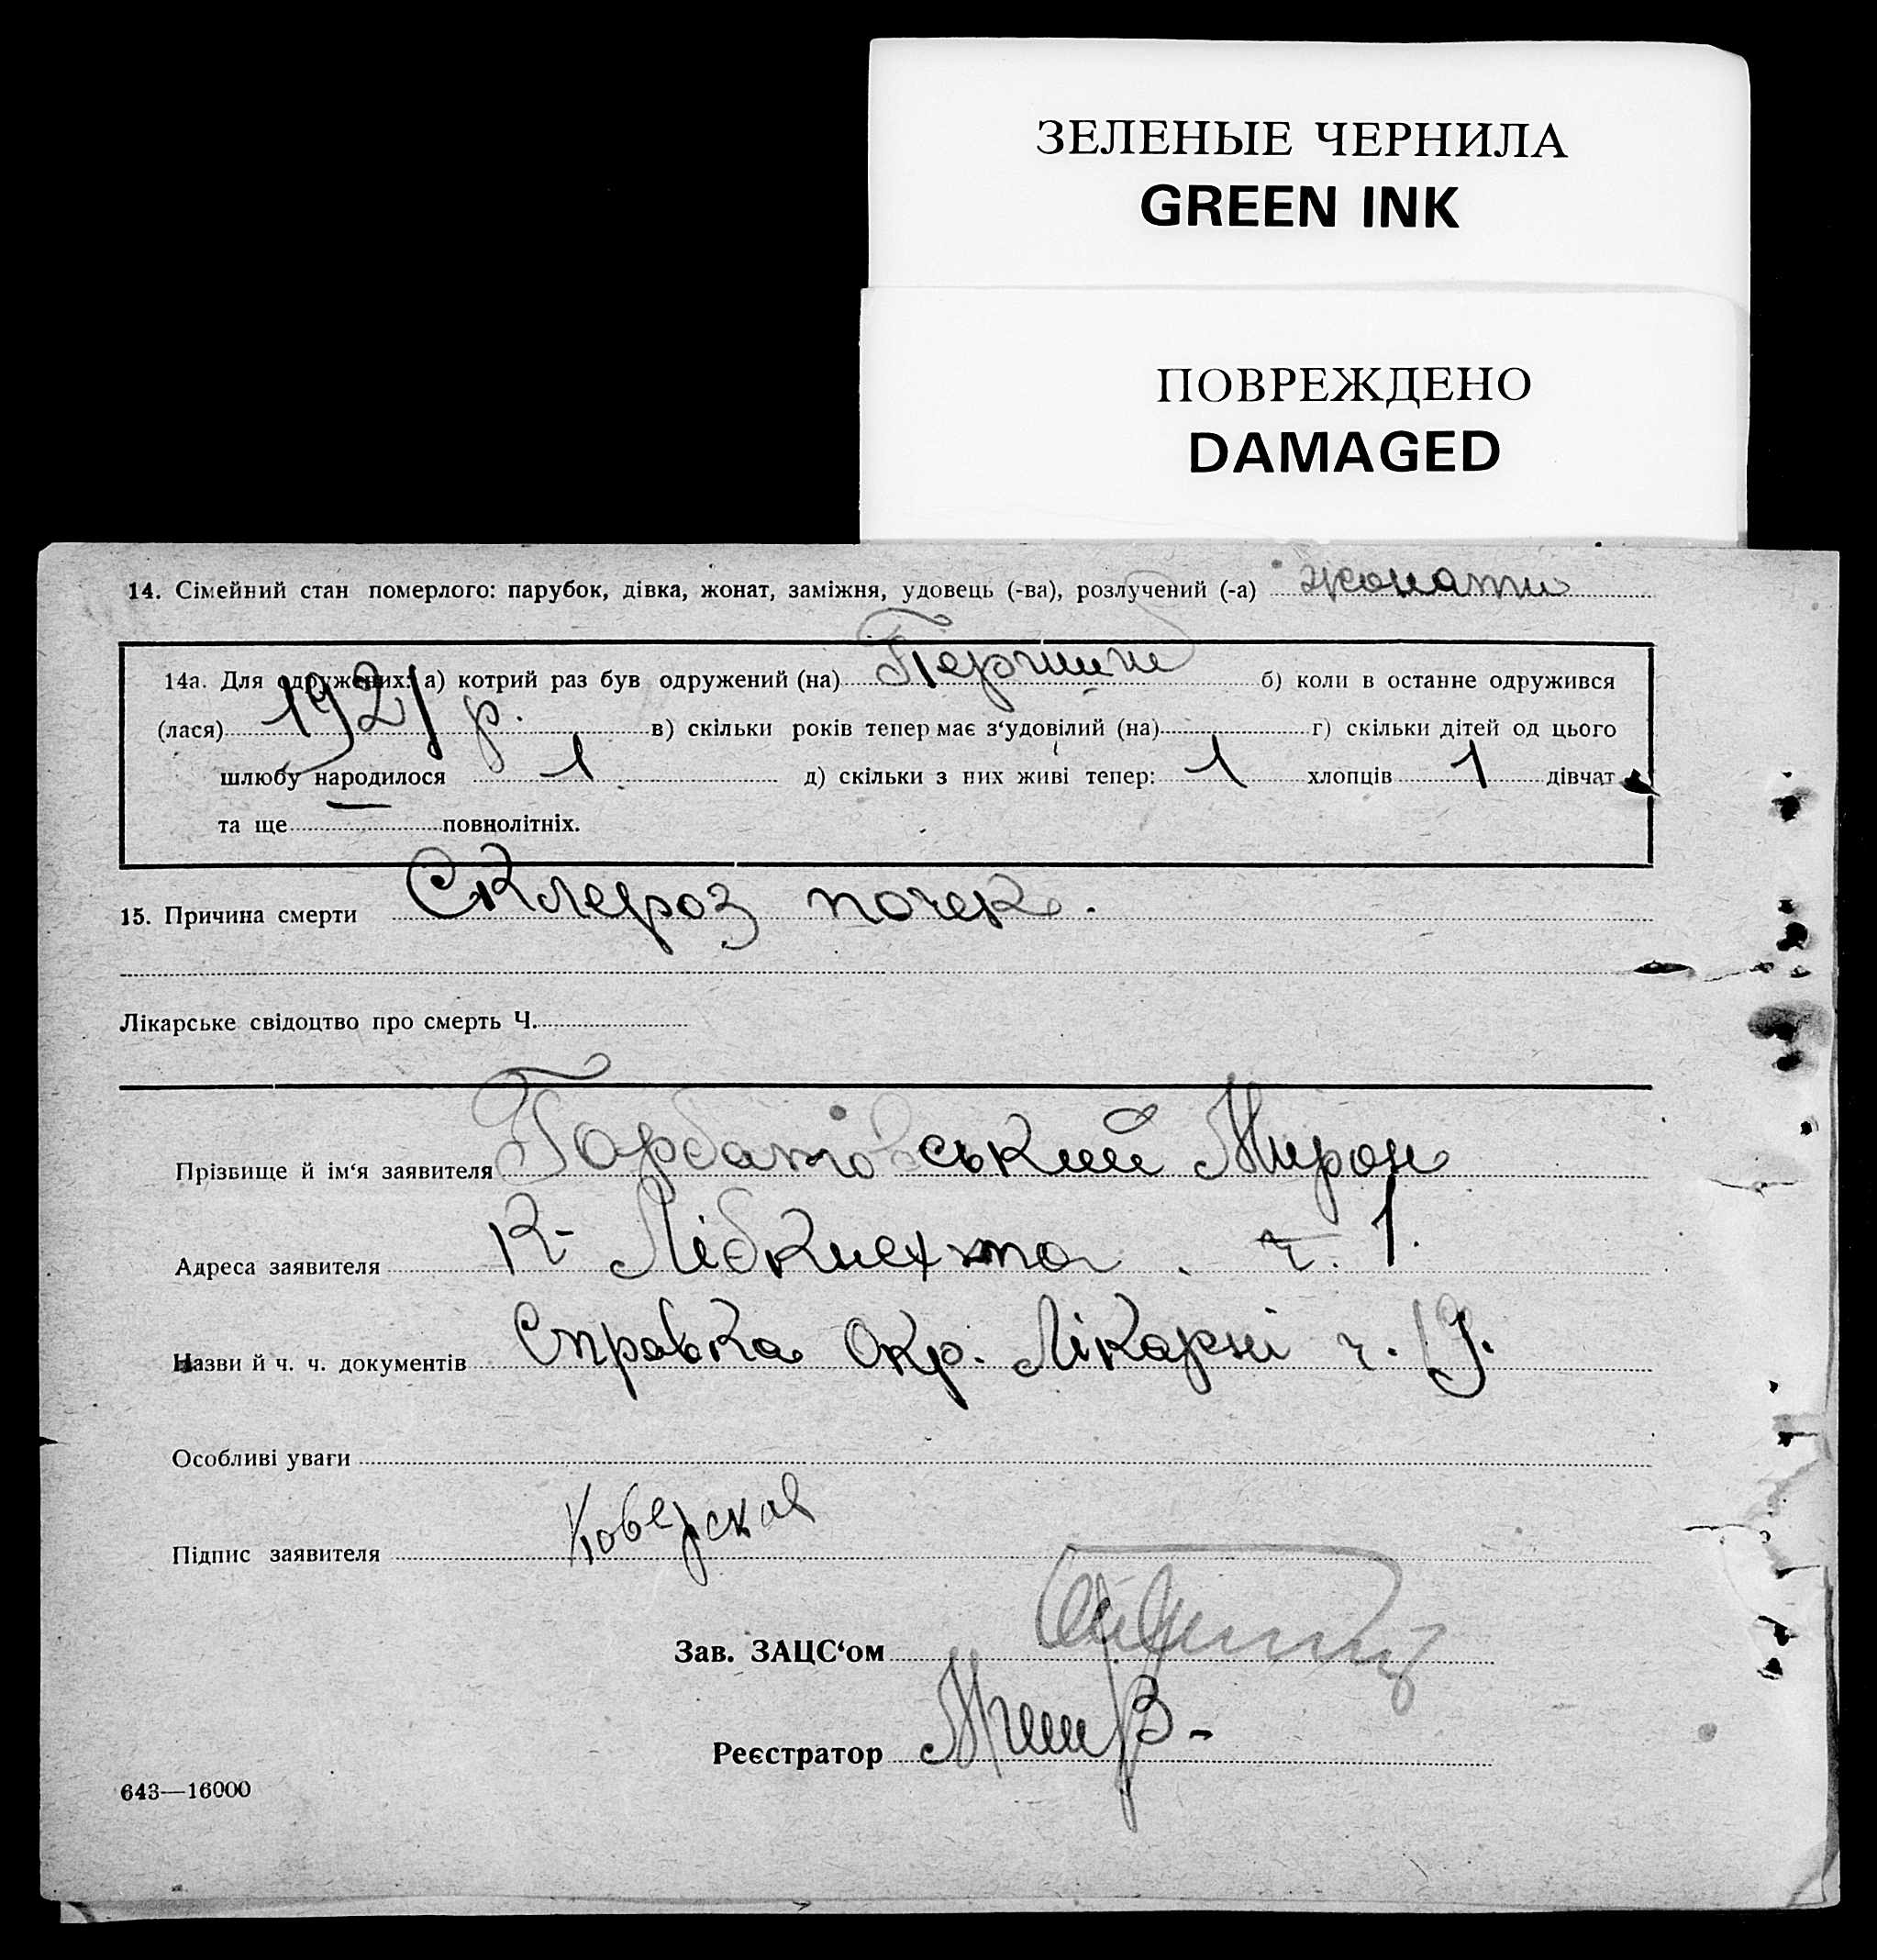 ЗЕЛЕНЫЕ ЧЕРНИЛА
GREEN INK
ПОВРЕЖДЕНО
DAMAGED
14. Сімейний стан померлого: парубок, дівка, жонат, заміжня, удовець (-ва), розлучений (-а) жонати
14а. Для одружених: а) котрий раз був одружений (на) Перший б) коли в останне одружився
(лася) 1921 р. в) скільки років тепер має з‘удовілий (на) г) скільки дітей од цього
шлюбу народилося 1 д) скільки з них живі тепер: 1 хлопців 1 дівчат
та ще — повнолітніх.
15. Причина смерти Склероз почек.
Лікарське свідоцтво про смерть Ч.
Прізвище й ім‘я заявителя Горбатовський Мирон
Адреса заявителя К- Лібкнехта. ч. 1.
Назви й ч. ч. документів Справка Окр. Лікарні ч.
Особливі уваги
Підпис заявителя
Зав. ЗАЦС‘ом
Реєстратор
643—16000